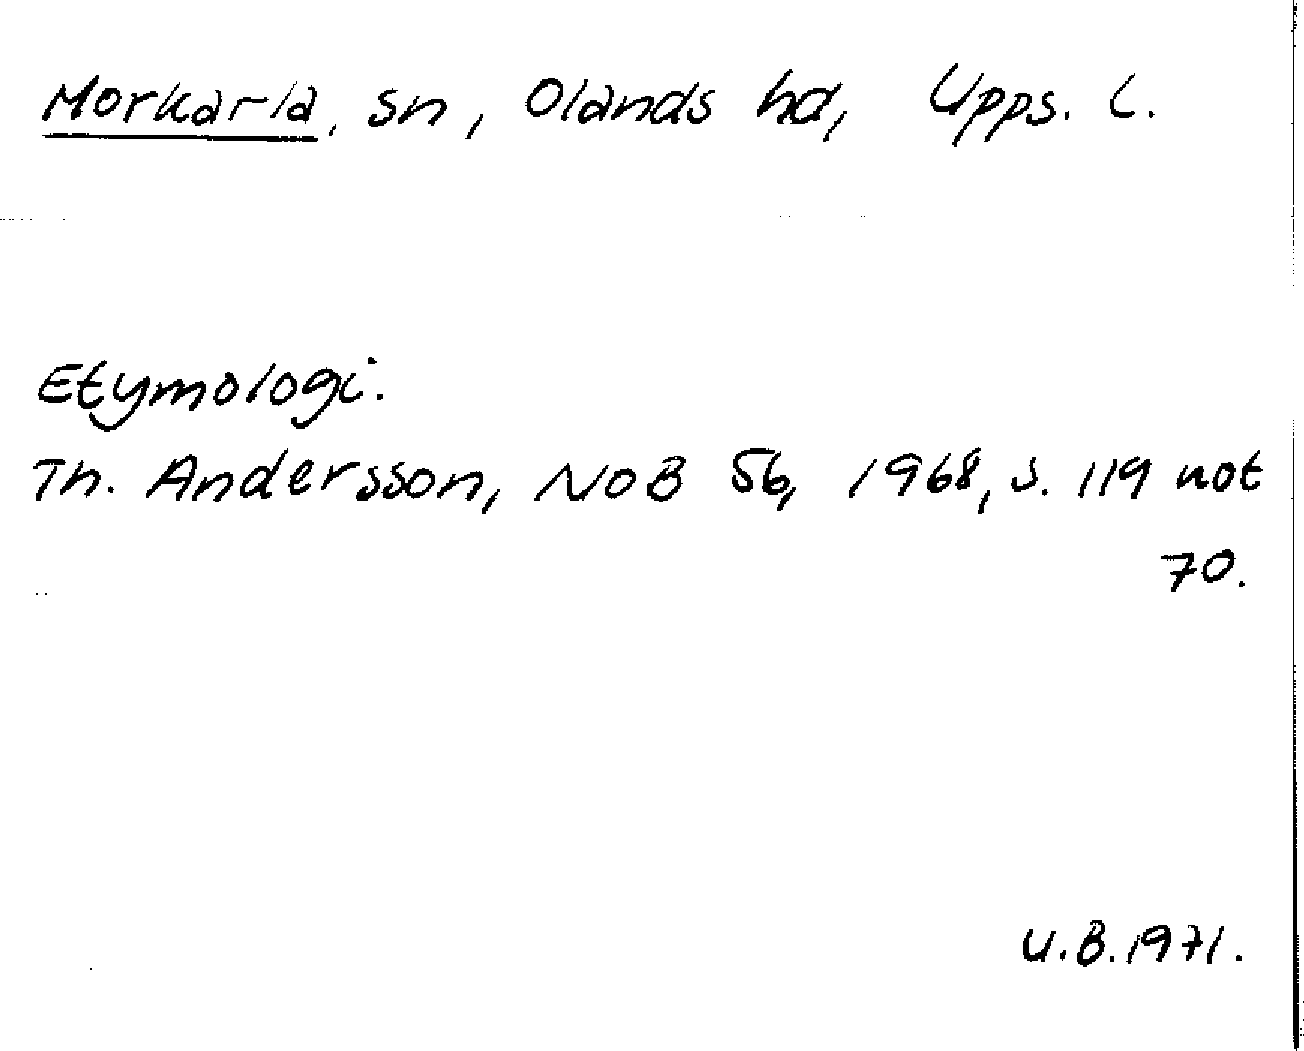 Morkarla, sn, Olands hd, Upps. L.
Etymologi.
Th. Andersson, NoB 56, 1968, s. 119 not
70.
U.B. 1971.